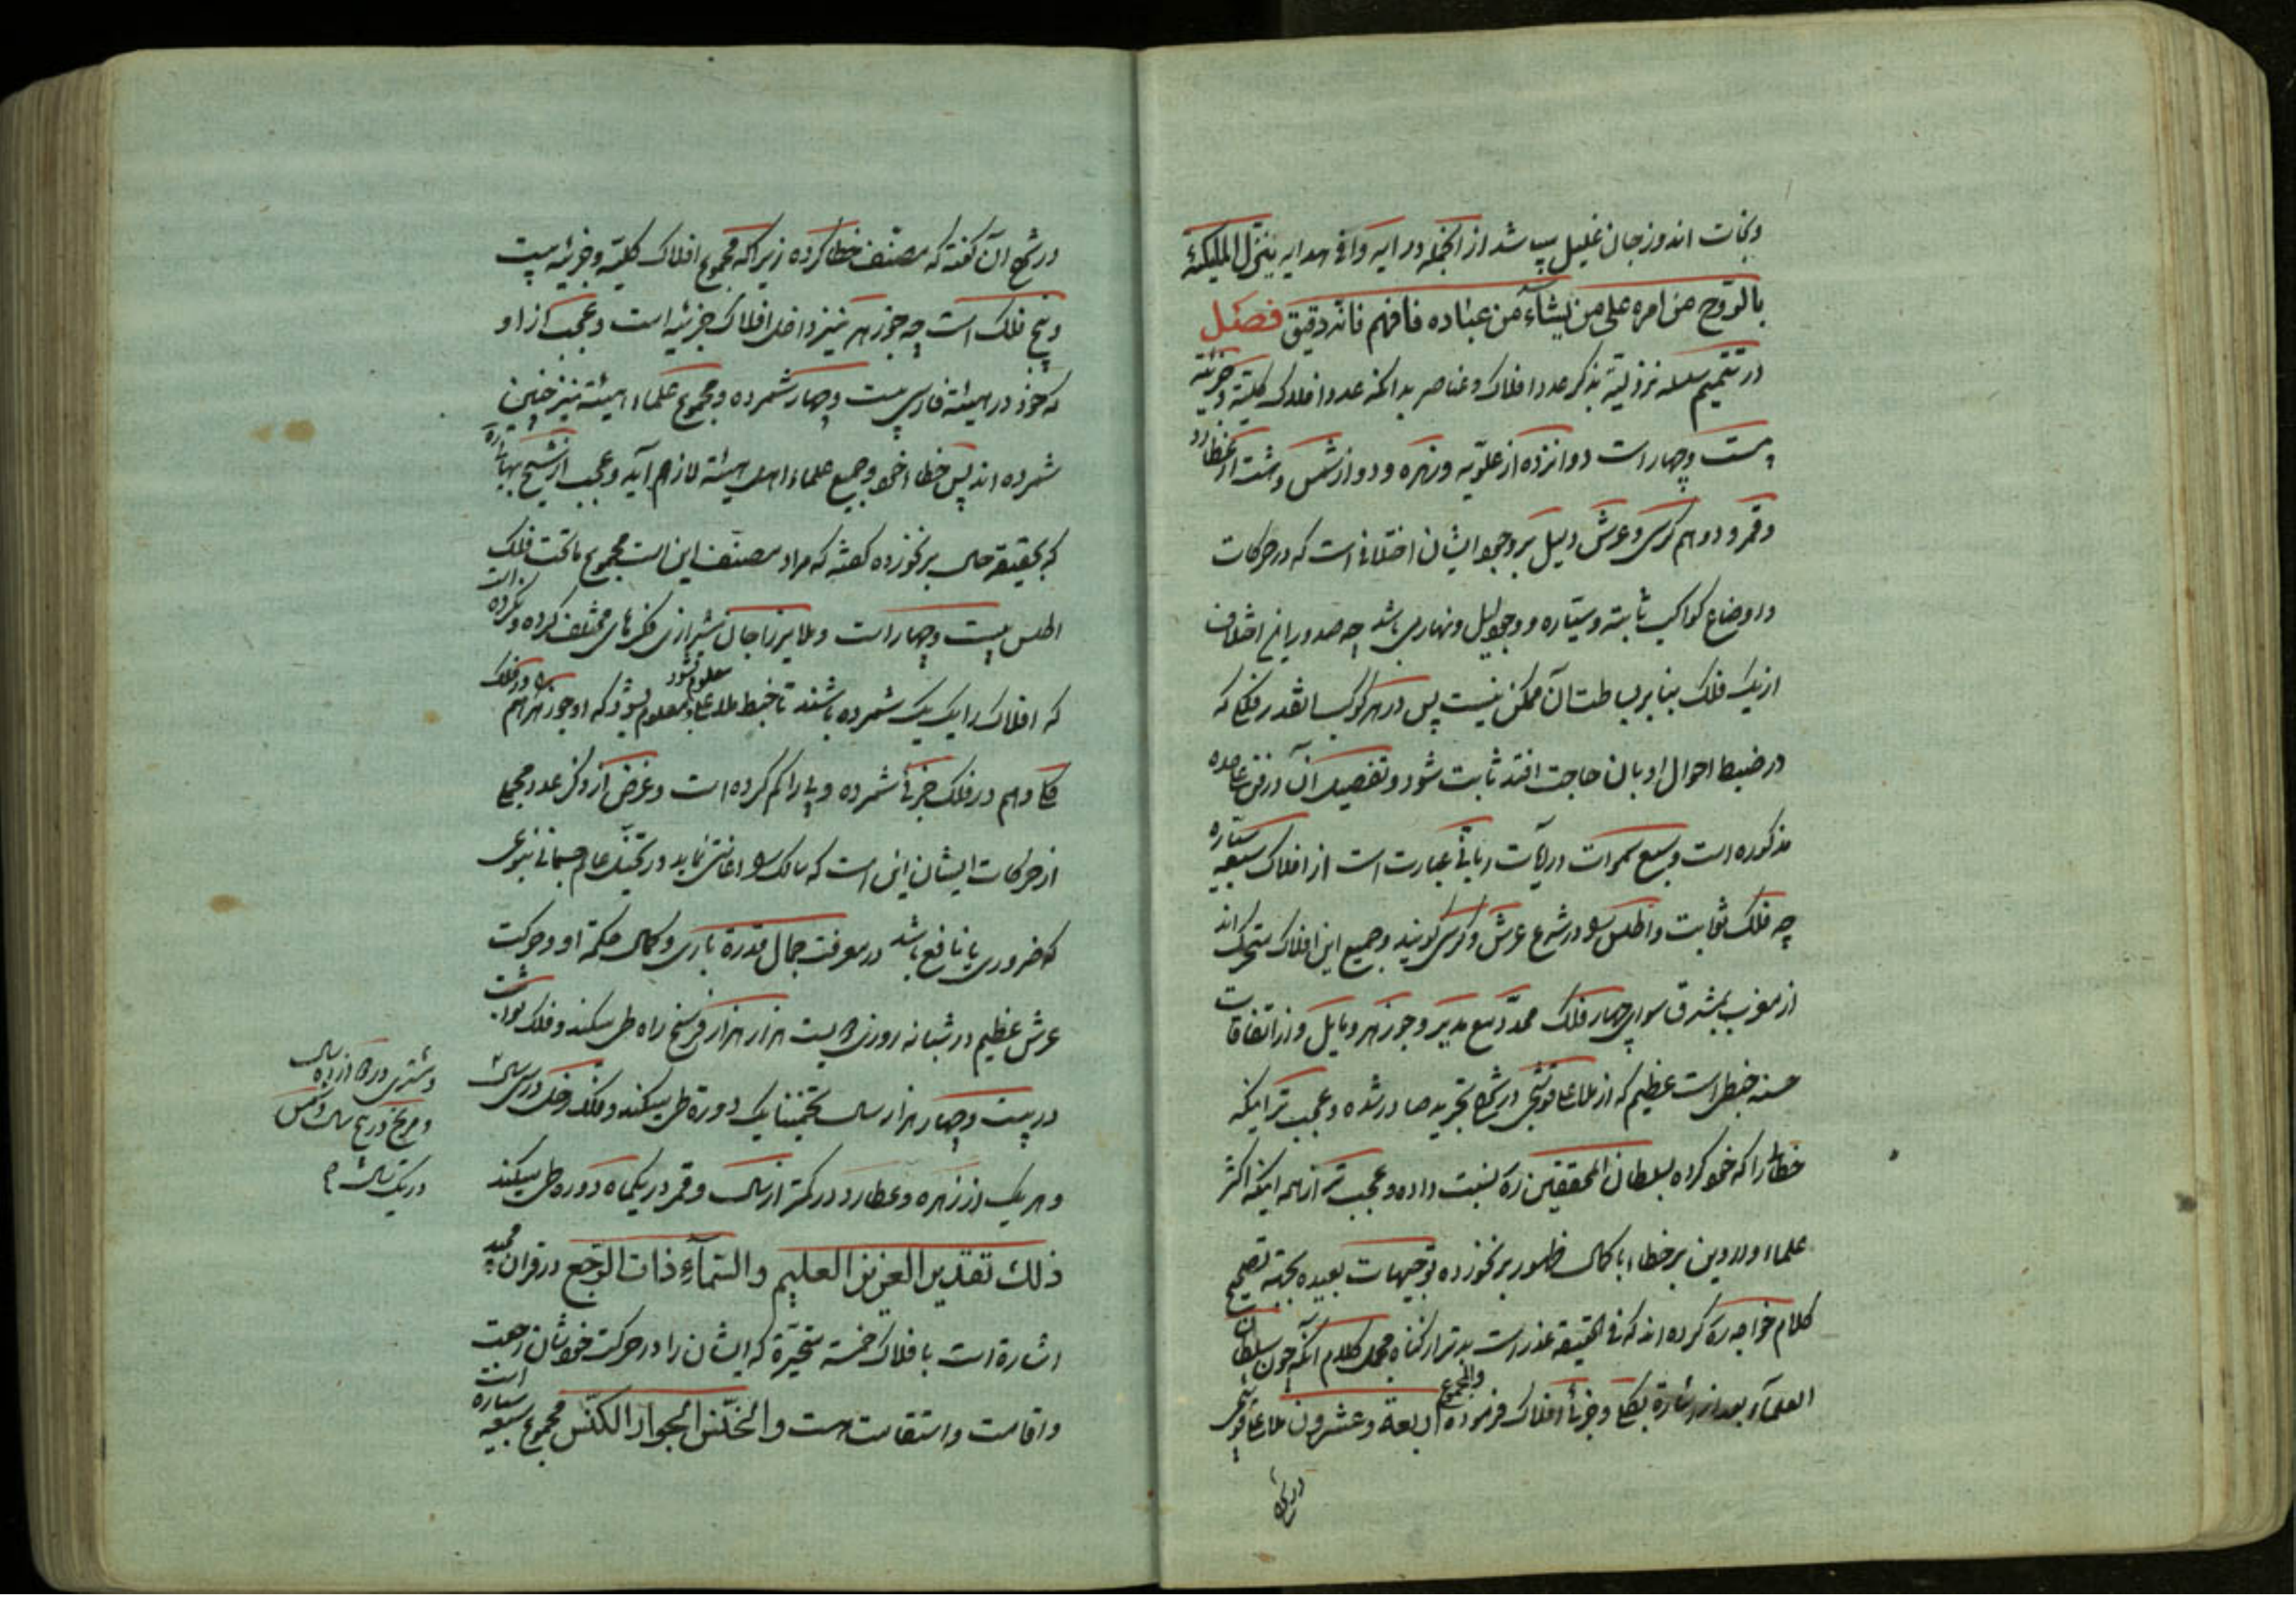 ونجات اندوز جان علیل باشد از انجمله در ایه وافی هدایه ینزل الملیکة
بالروح من امره علی من یشآء من عباده فافهم فانه دقیق فصل
در تتمیم سلسله نزولیة بذکر عدد افلاک وعناصر بدانکه عدد افلاک کلیّة وجزئیّة
بیست وچهار است دوانزده از علویّه وزهره ودو از شمس وهشت از عطارد
وقمر ودو هم کرسی وعرش دلیل بر وجود ایشان اختلافی است که در حرکات
واوضاع کواکب ثابته وسیّاره ووجود لیل ونهار می باشد چه صدور این اختلاف
از یک فلک بنا بر بساطت آن ممکن نیست پس در هر کوکب انقدر فلکی که
در ضبط احوال او بان حاجت افتد ثابت شود وتفصیل آن در فن علیحده
مذکوره است وسبع سموات در آیات ربانی عبارت است از افلاک سبعه سیّاره
چه فلک ثوابت واطلس را در شرع عرش وکرسی گویند وجمیع این افلاک متحرک اند
از مغرب بمشرق سوای چهار فلک محدّد مدیر وجوزهر ومایل واز اتفاقات
حسنه خبطی است عظیم که از ملا علی قوشچی در شرح تجرید صادر شده وعجب تر اینکه
خطا را که خود کرده بسلطان المحققین ره نسبت داده وعجب تر از همه اینکه اکثر
علماء ودر دین بر خطاء با کمال ظهور بر نخورده توجیهات بعیده بجهة تصحیح
کلام خواجه ره کرده اند که فی الحقیقة عذر است بدتر از گناه مجمل کلام آنکه چون سلطان
العلمآء بعد از اشارة بکلی وجزئی افلاک فرموده والمجموع اربعة وعشرون ملا علی قوشچی
در شرح
در شرح آن گفته که مصنّف خطا کرده زیرا که مجموع افلاک کلیّه وجزئیه بیست
وپنج فلک است چه جوزهر نیز داخل افلاک جزئیه است وعجب از او
که خود در هیئة فارسی بیست وچهار شمرده ومجموع علماء هیئة نیز چنین
شمرده اند پس خطا خود وجمیع علماء اهل هیئة لازم آید وعجب از شیخ بهائی ره
که بحقیقة حال بر نخورده گفته که مراد مصنف این است مجموع ماتحت فلک
اطلس بیست وچهار است وملا میرزا جان شیرازی فکرهای مختلف کرده ونکرده است
که افلاک را یک یک شمرده باشند تا خبط ملا علی معلوم شود که او جوزهر را هم در فلک
کلی وهم در فلک جزئی شمرده وپا را کم کرده است وغرض از ذکر عدد مجملی
از حرکات ایشان این است که سالک را اعانتی نماید در تخیّل عالم جسمانی بنوعی
که ضروری یا نافع باشد در معرفت جمال قدرة باری وکمال حکمة او وحرکت
عرش عظیم در شبانه روزی بیست هزار هزار فرسخ راه طی میکند وفلک ثوابت
در بیست وچهار هزار سال تخمینا یک دوره طی میکند وفلک زحل در سی سال
وهر یک از زهره وعطارد در کمتر از سال وقمر در یکماه دوره طی میکند
ذلك تقدیر العزیز العلیم والسّمآءِ ذات الرّجع در قران مجید
اشارة است بافلاک خمسه متحیّره که ایشان را در حرکت خود شان رجعت
واقامت واستقامت است والخنّس الجوار الکنّس مجموع سبعه سیاره است
ومشتری در دوازده سال
ومریخ در سال وشمس
در یک سال